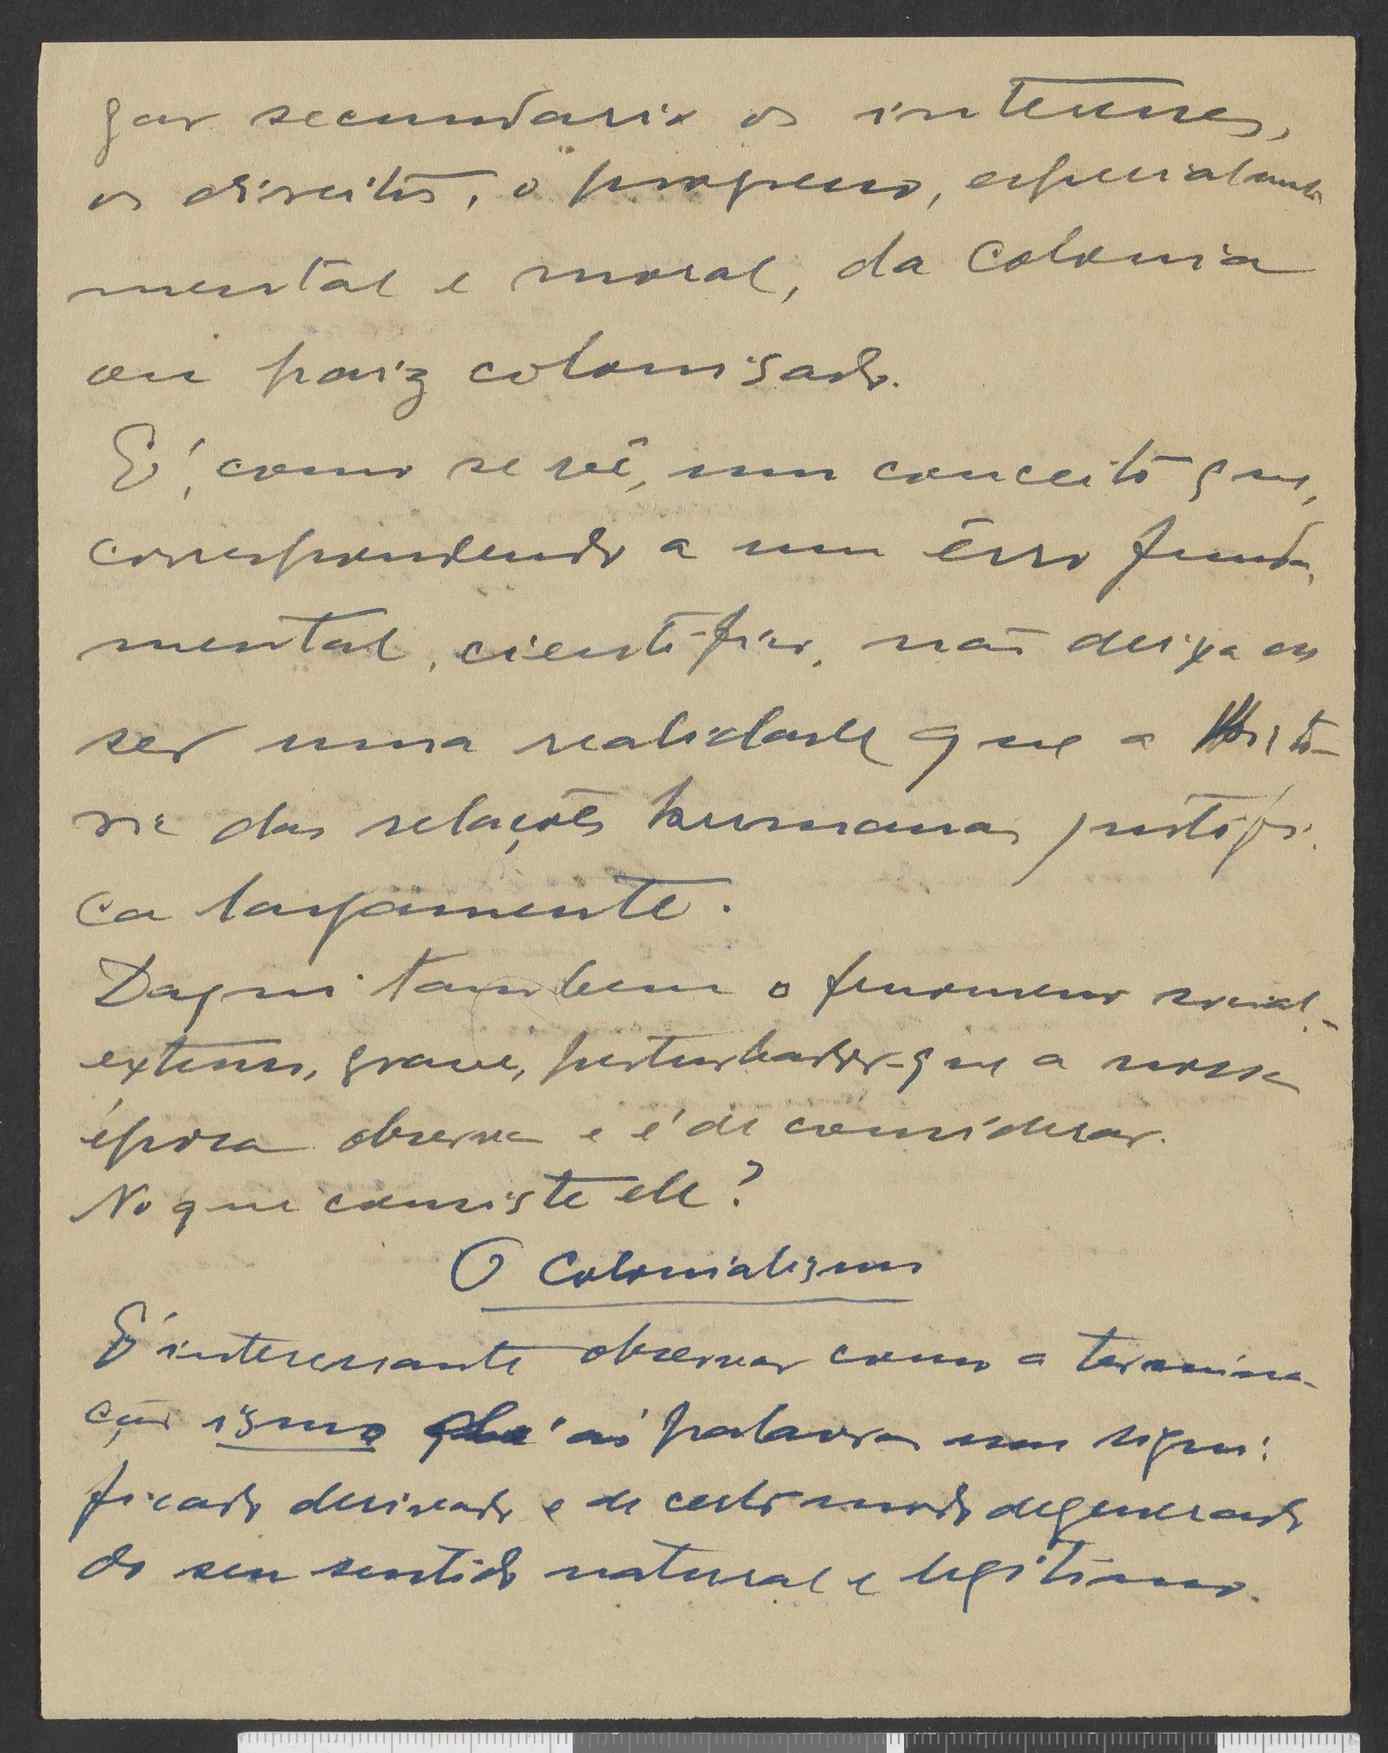 gar secundario os interesses,
os direitos, o progresso, especialmente
mental e moral, da colonia
ou paiz colonisado.
E', como se vê, um conceito que,
correspondendo a um êrro funda-
mental, cientifico, não deixa de
ser uma realidade que a histo-
ria das relações humanas justifi-
ca largamente.
Daqui tambem o fenomeno social,-
extenso, grave, perturbador-que a nossa
época observa e é de considerar.
No que consiste ele?
O Colonialismo
E' interessante observar como a termina-
ção ismo dá ás palavras um signi-
ficado derivado e de certo modo degenerado
do seu sentido natural e legitimo.